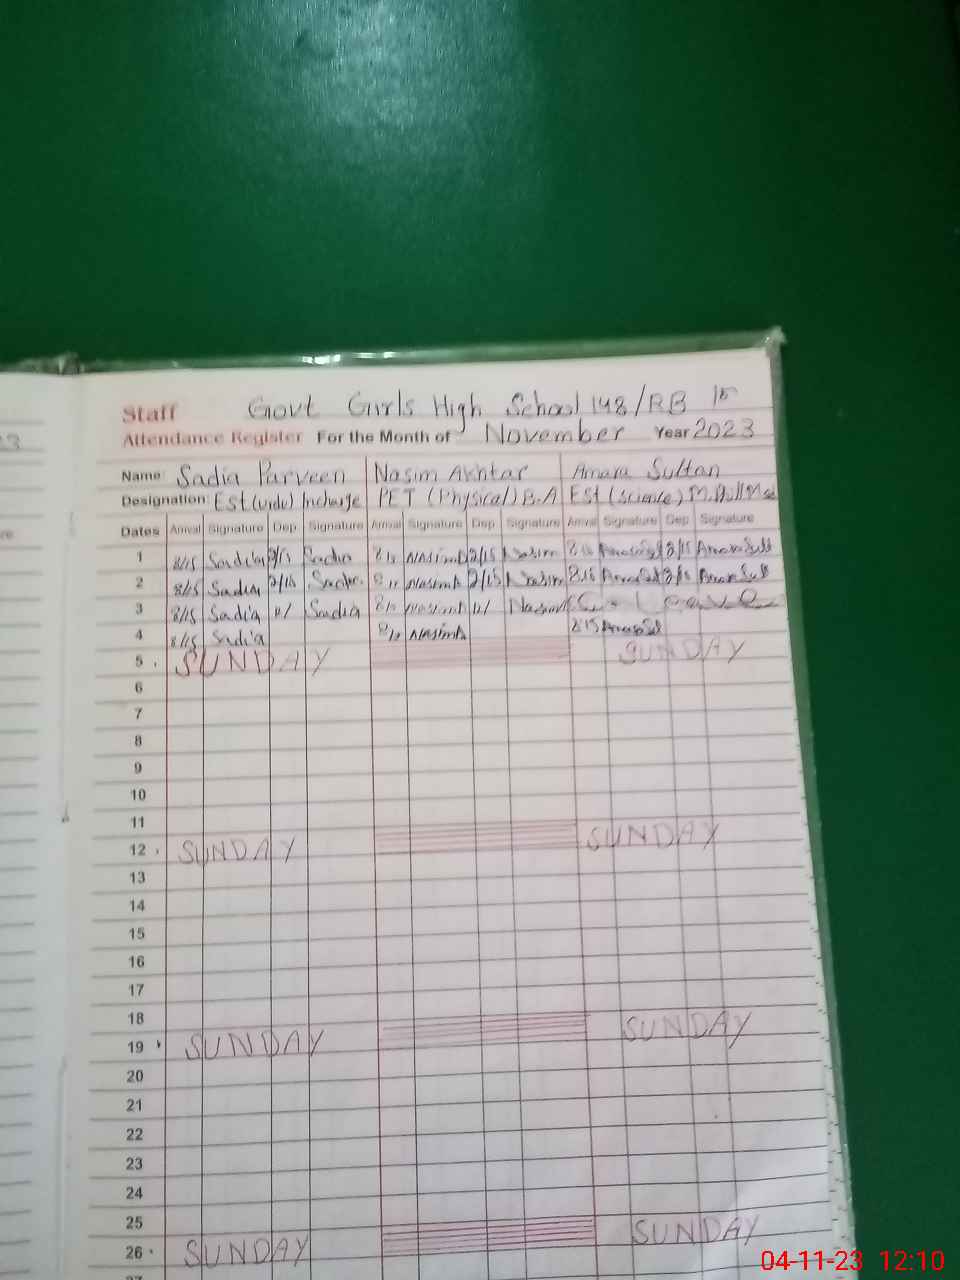 Staff Govt Girls High School 148/RB
Attendance Register For the Month of November Year 2023
Name: Sadia Parveen Nasim Akhtar Amara Sultan
Designation: Est (urdu) Incharge PET (Physical) B.A Est (Science)
Dates Arrival Signature Dep Signature Arrival Signature Dep Signature Arrival Signature Dep Signature
1 8/15 Sadia 2/15 Sadia Nasim 2/15 Nasim 2/15
2 8/15 Sadia 2/15 Sadia Nasim 2/15 Nasim 8/15 2/15
3 8/15 Sadia 11/ Sadia Nasim 11/ Nasim Leave
4 8/15 Sadia Nasim 8/15
5 SUNDAY SUNDAY
6
7
8
9
10
11
12 SUNDAY SUNDAY
13
14
15
16
17
18
19 SUNDAY SUNDAY
20
21
22
23
24
25
26 SUNDAY SUNDAY
04-11-23 12:10